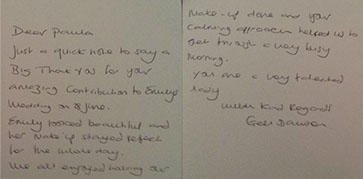 Dear Paula
Just a quick note to say a
Big Thank You for your
amazing contribution to Emily's
Wedding on 8 June.
Emily looked beautiful and
her Make up stayed perfect
for the whole day.
We all enjoyed having our
Make-up done and your
calming approach helped us to
get through a very busy
morning.
You are a very talented
lady
With Kind Regards
Dawson